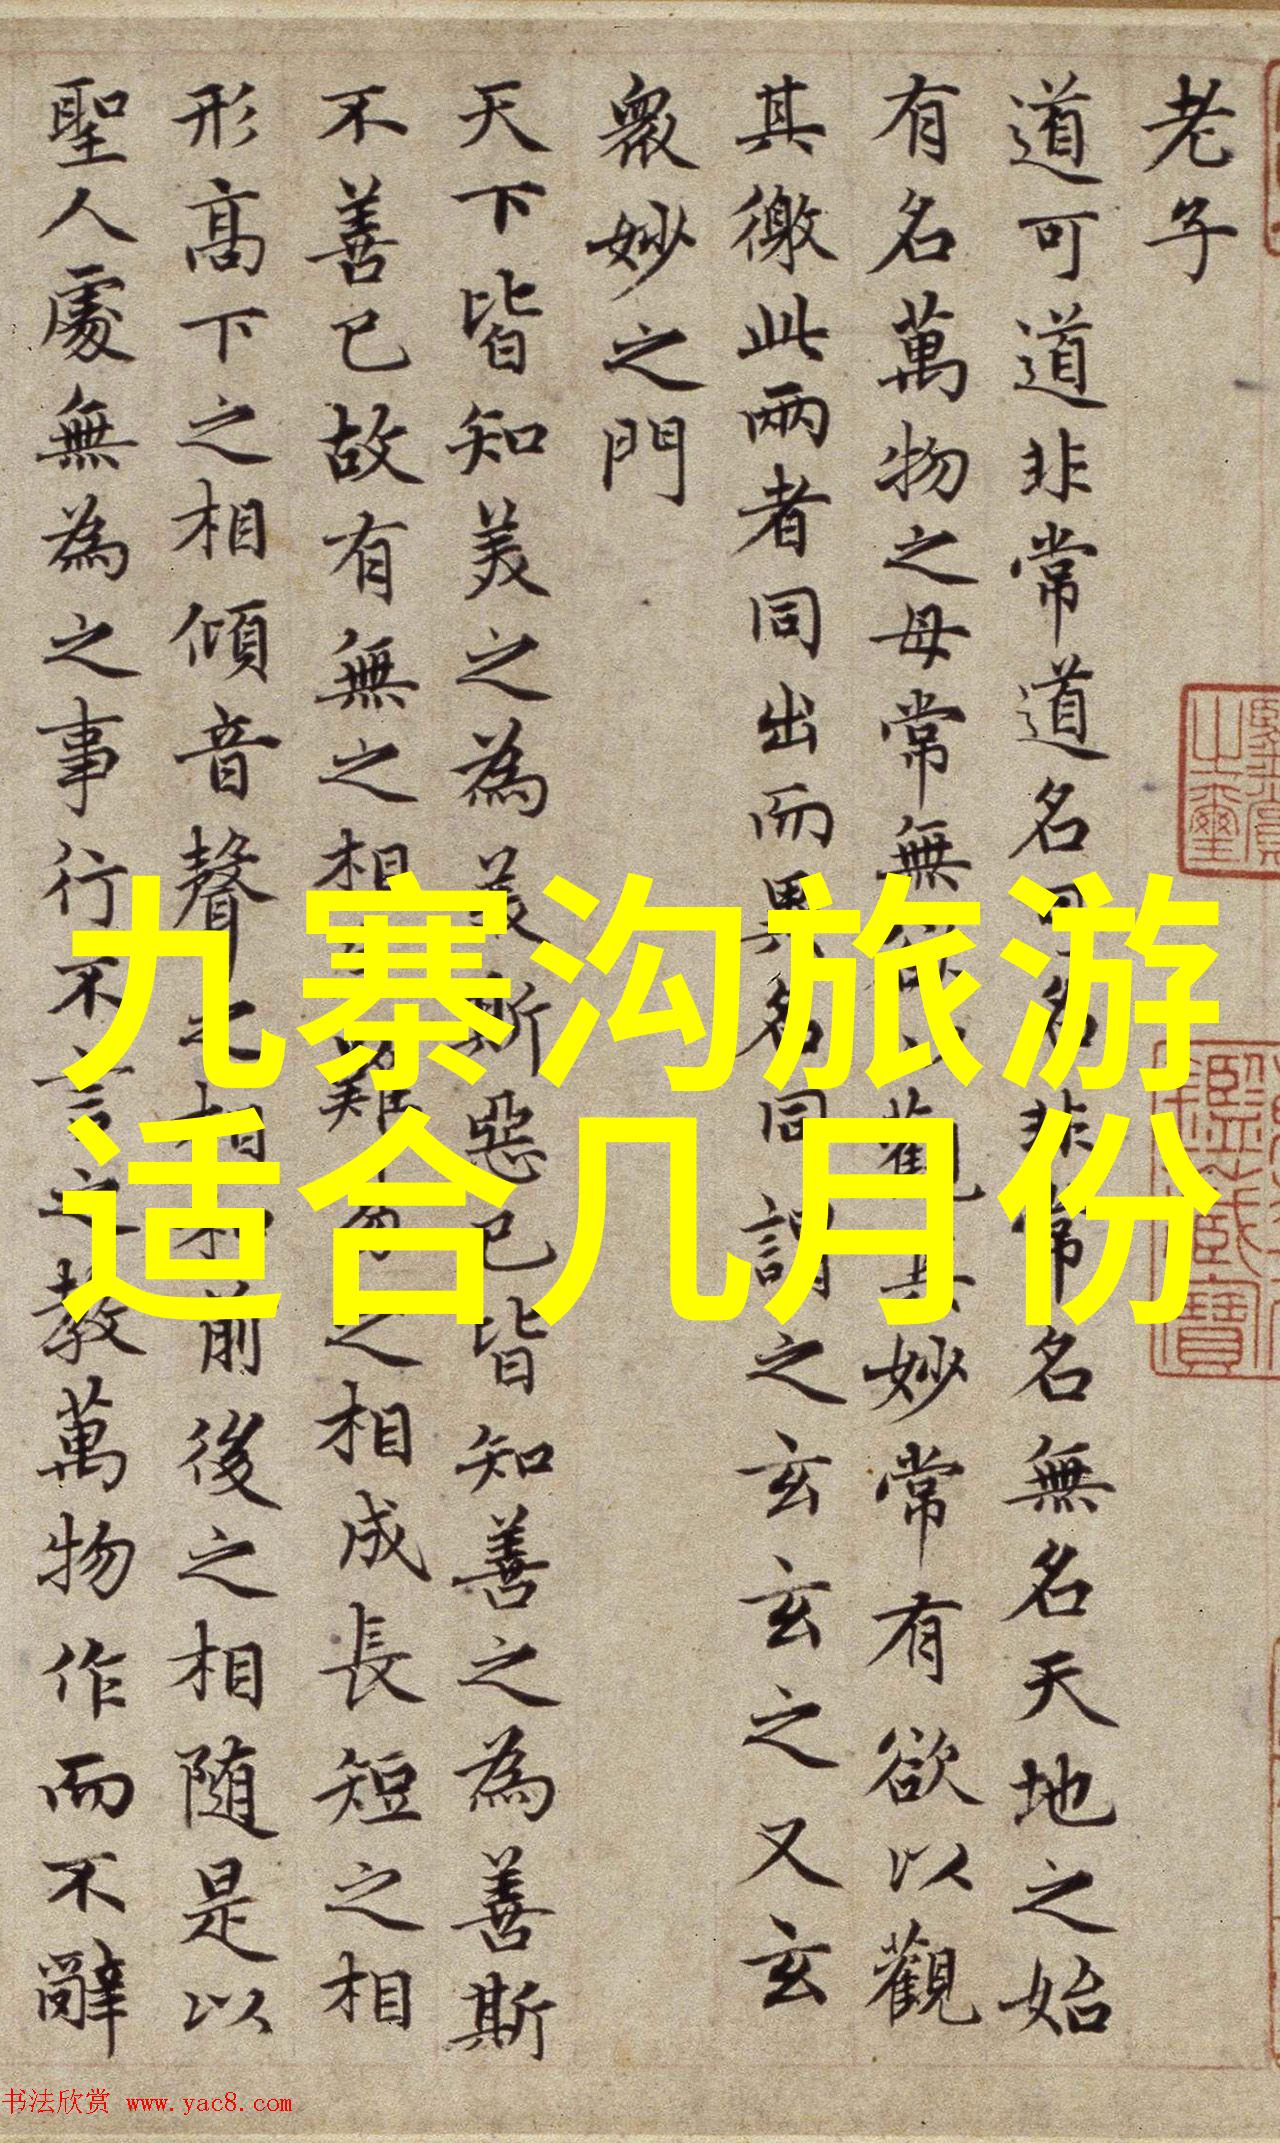 老子
道可道非常道名名非常名無名天地之始
有名萬物之母常無觀其妙常有欲以觀
其徼此兩者同出而異名同謂之玄玄之又玄
衆妙之門
天下皆知美之為美斯惡已皆知善之為善斯
不善已故有無之相難之相成長短之相
形高下之相傾音聲之相和前後之相随是以
聖人處無為之事行不言之教萬物作而不辭
九寨沟旅游
适合几月份
书法欣赏 www.yac8.com